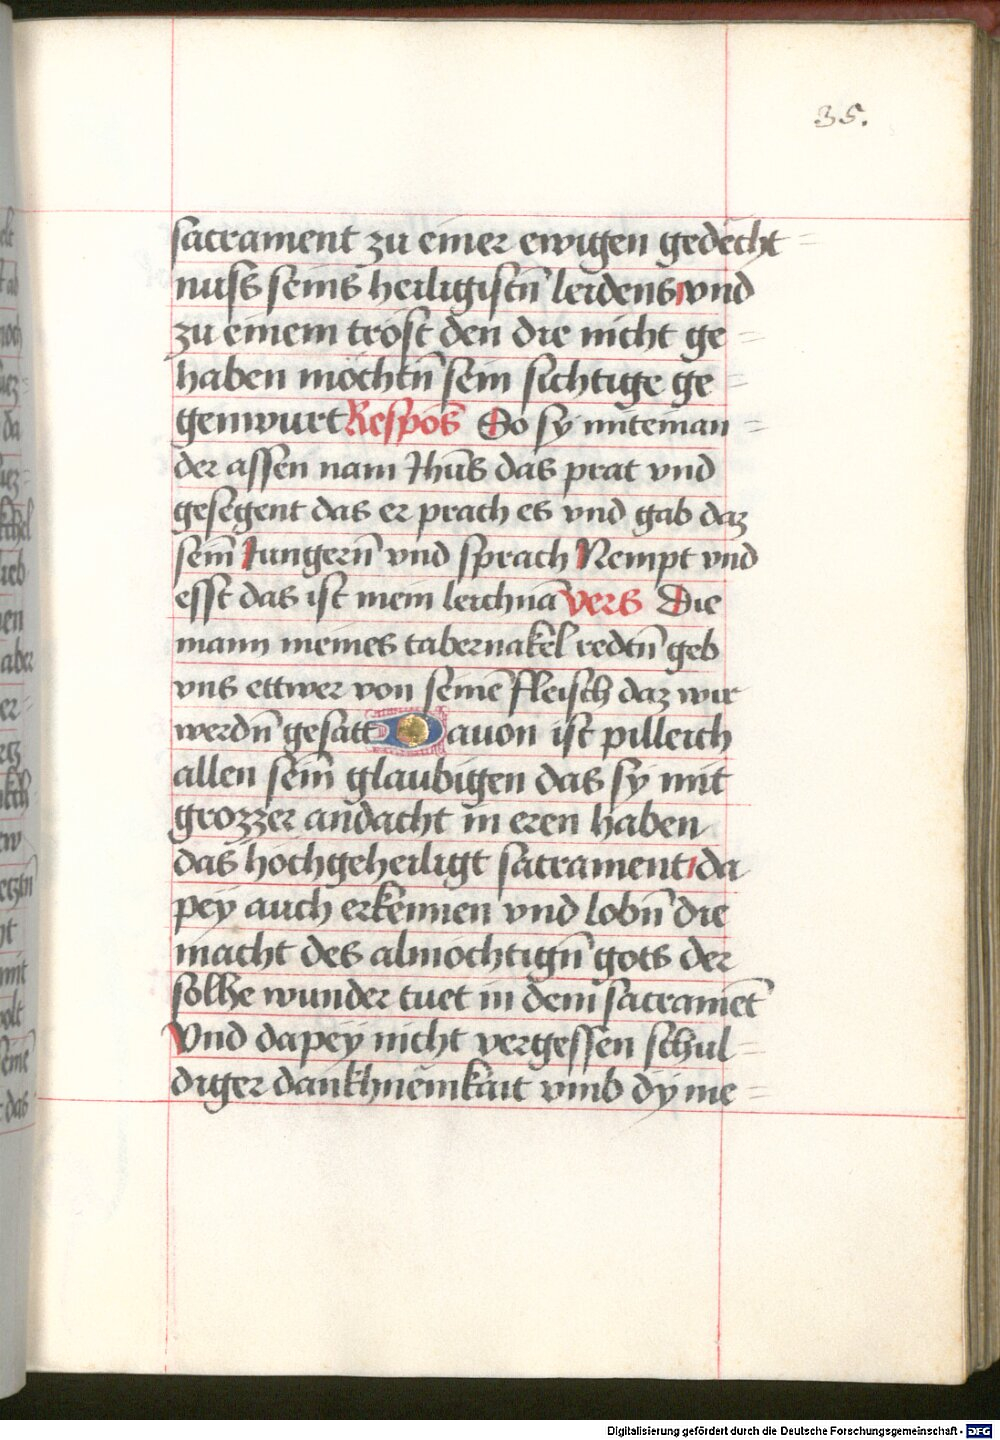 35.
sacrament zu einer ewigen gedecht=
nuss seins heiligistn̄ leidens vnd
zu einem trost den die nicht ge=
haben möchtn̄ sein sichtige ge=
genwurt Respos̄ So sy miteinan=
der assen nam Ihūs das prat vnd
gesegent das er prach es vnd gab daz
sein̄ Iungern̄ vnd sprach Nempt vnd
esst das ist mein leichnā vers Die
mann meines tabernakel redtn̄ geb
vns ettwer von seinē fleisch daz wir
werdn̄ gesatt Dauon ist pilleich
allen sein̄ glaubigen das sy mit
grozzer andacht in eren haben
das hochgeheiligt sacrament da
pey auch erkennen vnd lobn̄ die
macht des almöchtign̄ gots der
sölhe wunder tuet in dem sacramēt
Vnd dapey nicht vergessen schul=
diger dankhnēmkait vmb dy me=
Digitalisierung gefördert durch die Deutsche Forschungsgemeinschaft - DFG